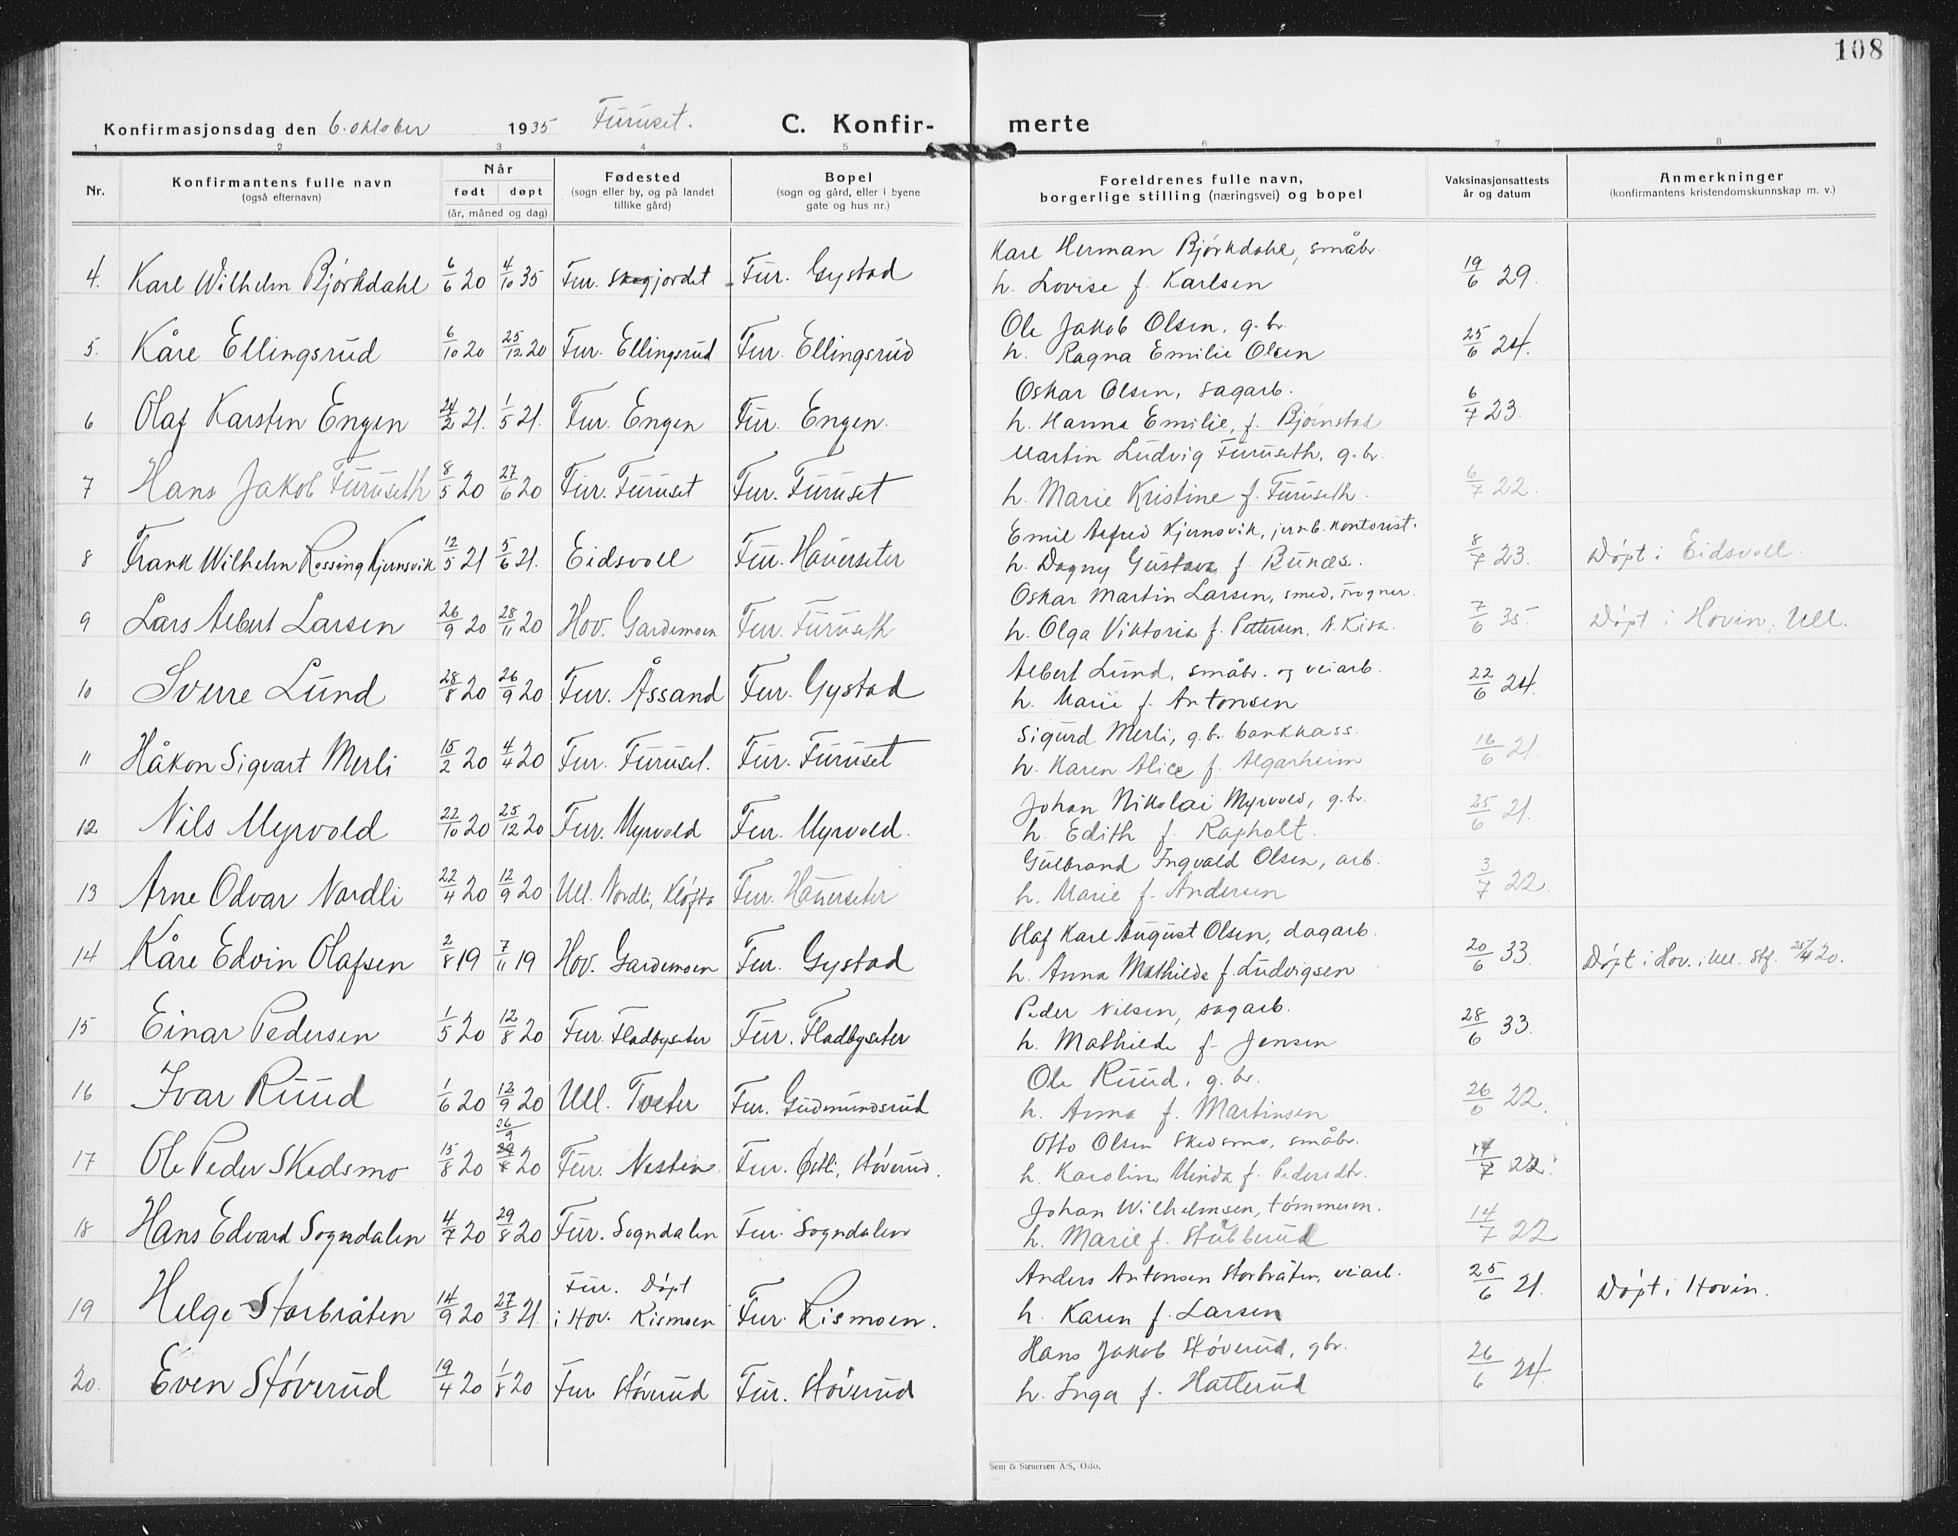 108
Konfirmasjonsdag den 6. oktober 1935 Furuset. C. Konfir- merte
1 2 3 4 5 6 7 8
Nr. Konfirmantens fulle navn (også efternavn) Når født døpt (år, måned og dag) Fødested (sogn eller by, og på landet tillike gård) Bopel (sogn og gård, eller i byene gate og hus nr.) Foreldrenes fulle navn, borgerlige stilling (næringsvei) og bopel Vaksinasjonsattests år og datum Anmerkninger (konfirmantens kristendomskunnskap m. v.)
Karl Herman Bjørkdahl, småbr.
4. Karl Wilhelm Bjørkdahl 6/6 20 4/10 35 Fur. Skogjordet Fur. Gystad h. Lovise f. Karlsen 19/6 29.
Ole Jakob Olsen, g.br.
5. Kåre Ellingsrud 6/10 20 25/12 20 Fur. Ellingsrud Fur. Ellingsrud h. Ragna Emilie Olsen 25/6 24.
Oskar Olsen, sagarb.
6 Olaf Karsten Engen 24/2 21. 1/5 21. Fur. Engen Fur. Engen. h. Hanna Emilie, f. Bjørnstad 6/7 23.
Martin Ludvig Furuseth, g.br.
7 Hans Jakob Furuseth 8/5 20 27/6 20 Fur. Furuset Fur. Furuset h. Marie Kristine f. Furuseth. 6/7 22.
Emil Alfred Kjernsvik, jernb.kontorist.
8 Frank Wilhelm Rossing Kjernsvik 12/5 21 5/6 21. Eidsvoll Fur. Hauerseter h. Dagny Gustava f. Bunæs. 8/7 23. Døpt i Eidsvoll.
Oskar Martin Larsen, smed, Frogner.
9 Lars Albert Larsen 26/9 20 28/11 20 Hov. Gardemoen Fur. Furuseth h. Olga Viktoria f. Pettersen, N. Kisa. 7/6 35. Døpt i Hovin, Ull.
Albert Lund, småbr. og veiarb.
10 Sverre Lund 28/8 20 26/9 20 Fur. Åssand Fur. Gystad h. Marie f. Antonsen 22/6 24.
Sigurd Merli, g.br. bankkass.
11 Håkon Sigvart Merli 15/2 20 4/4 20 Fur. Furuset. Fur. Furuset h. Karen Alice f. Algarheim 16/6 21.
Johan Nikolai Myrvold, g.br.
12 Nils Myrvold 22/10 20 25/12 20 Fur. Myrvold Fur. Myrvold. h. Edith f. Ragholt. 25/6 21.
Gulbrand Ingvald Olsen, arb.
13 Arne Odvar Nordli 22/4 20 12/9 20 Ull. Nordli, Kløfta Fur. Hauerseter h. Marie f. Andersen 3/7 22.
Olaf Karl August Olsen, dagarb.
14 Kåre Edvin Olafsen 2/8 19 7/11 19 Hov. Gardemoen Fur. Gystad h. Anna Mathilde f. Ludvigsen 20/6 33. Døpt i Hov. i Ull. Stf. 25/4 20.
Peder Nilsen, sagarb.
15 Einar Pedersen 1/5 20 12/8 20 Fur. Fladbyseter Fur. Fladbyseter h. Mathilde f. Jensen 28/6 33.
Ole Ruud, g.br.
16 Ivar Ruud 1/6 20 12/9 20 Ull. Tveter Fur. Gudmundsrud h. Anna f. Martinsen 26/6 22.
26/9
Otto Olsen Skedsmo, småbr.
17 Ole Peder Skedsmo 15/8 20 20 Fur. Nesten Fur. Østli, Støverud. h. Karoline Minda f. Pedersdtr. 14/7 22.
Johan Wilhelmsen, tømmerm.
18 Hans Edvard Sogndalen 4/7 20 29/8 20 Fur. Sogndalen Fur. Sogndalen h. Marie f. Stubberud 14/7 22
Fur. Døpt Anders Antonsen Storbråten, veiarb.
19 Helge Storbråten 14/9 20 27/3 21 i Hov. Rismoen Fur. Rismoen. h. Karen f. Larsen 25/6 21. Døpt i Hovin.
Hans Jakob Støverud, gbr.
20. Even Støverud 19/4 20 1/8 20 Fur Støverud Fur. Støverud h. Inga f. Hatterud 26/6 24.
Sem & Stenersen A/S, Oslo.